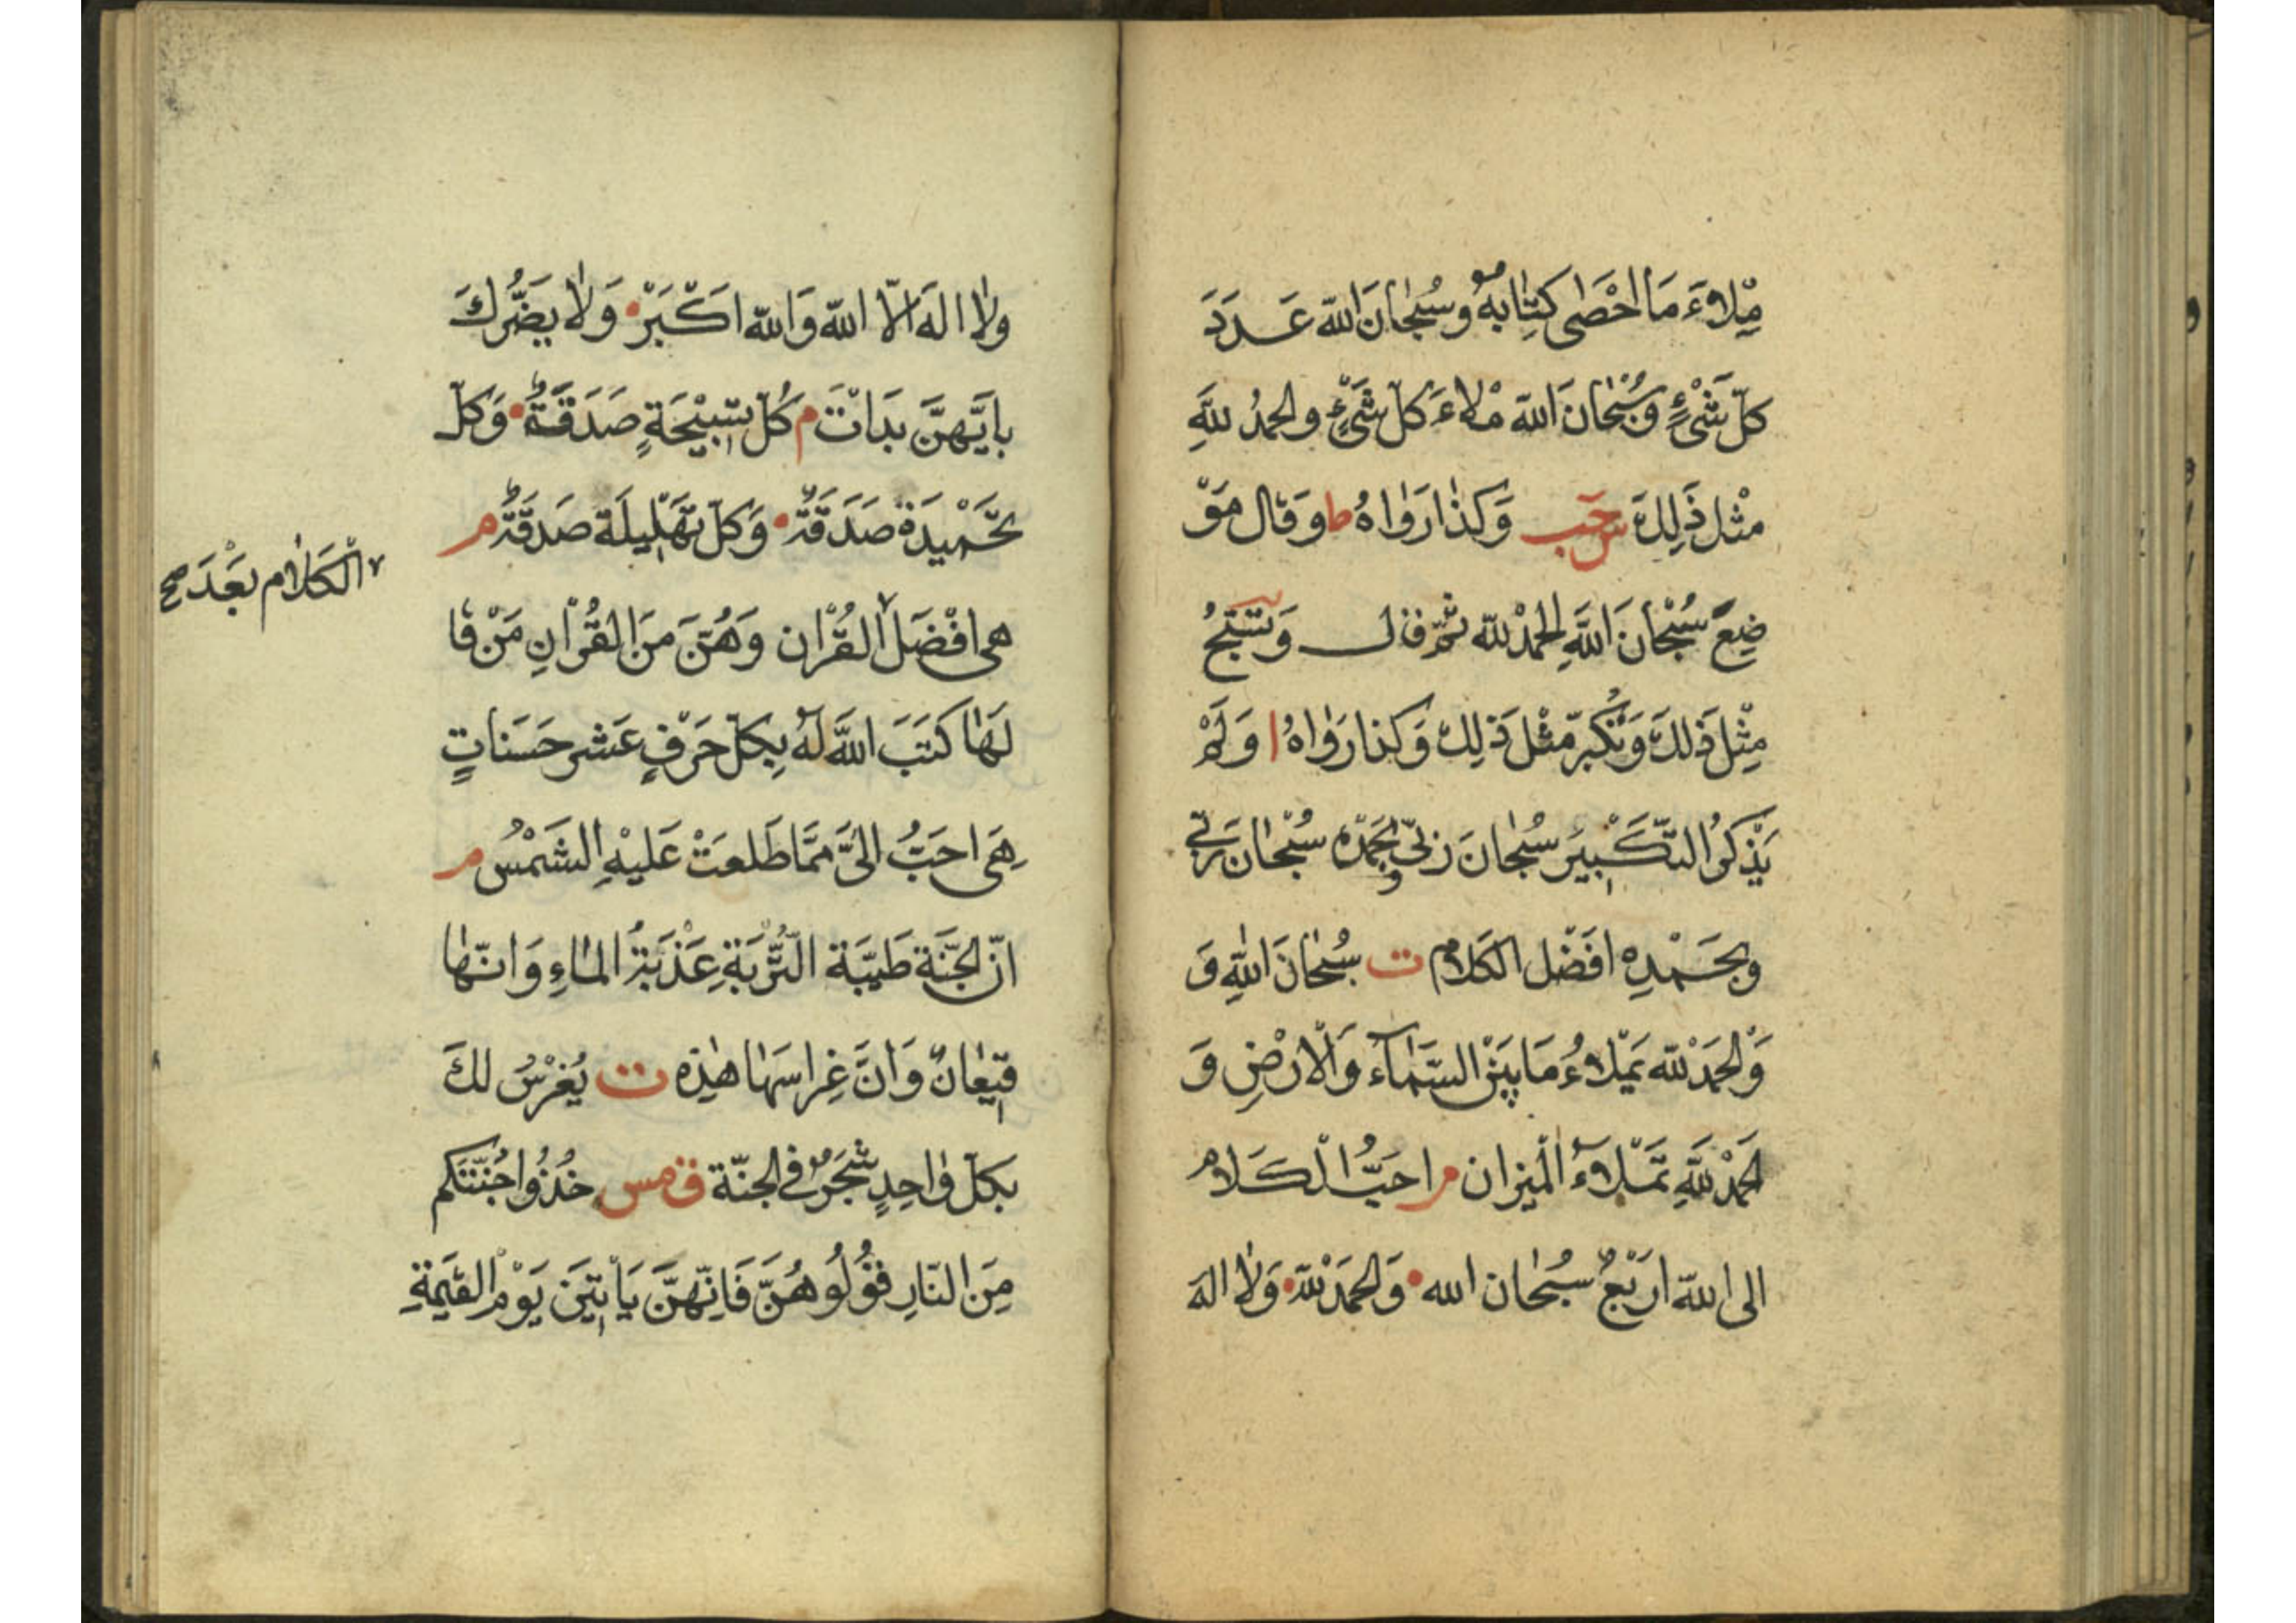 مِّلاءَ مَا اَحْصٰى كِتٰابهُ وَسُبْحٰانَ اللّه عَدَدَ
كلّ شَىْءٍ وَسُبْحٰانَ اللّه مْلاءَ كلّ شَىْءٍ والحمدُ للّهِ
مثْل ذَلِكَ حب س وَكذٰا رَوٰاهُ ط وَقال مَوْ
ضِعَ سُبْحٰانَ اللَّهِ الحمْدُ للّه ثمّ قال وَتُسَبّحُ
مِثْلَ ذَلكَ وَتُكبّر مّثْلَ ذلِكَ وَكذا رَوٰاهُ ا وَلَمْ
يَذْكرُ التّكَبْيَر سُبحٰانَ رَبّى وَبحَمْدِه سُبْحٰانَ رَبّى
وبحَمْدِه افَضْل الكَلام ت سُبْحٰانَ اللّٰهِ وَ
وَالحَمْدُ للّه تمْلاءُ مَا بيَنْ السَّمآءِ وَالْارْضِ وَ
الحمْدُ للّهِ تمَلْاءُ الْميزان م احَبُّ الْكَلام
الى اللّه ارْبَعٌ سُبْحٰان الله وَالحمَدْ للّهَ وَلاٰ الهَ
ولاٰ الهَ الّا اللّه وَاللّه اكَبَرْ وَلاٰ يضَرُّكَ
بايّهنَّ بدَاتْ م كُلّ تسْبيْحَةٍ صَدَقَةٌ وَكلّ
تحَميْدَة صَدَقةٌ وَكلّ تهَلْيِلَة صَدقَةٌ م
هى افْضَل القُرْان وَهُنَّ منَ القُرْاٰنِ مَنْ قا
الْكَلاٰم بَعْدَ صح
لَهٰا كَتَبَ اللَّه لهُ بِكلّ حَرْفٍ عَشر حَسَناتٍ
هِىَ احَبُّ الىَّ ممَّا طَلعَتْ عَليْهِ الشَمْسُ م
انّ الجَنَّة طَيّبَة التُّرْبَةِ عَذْبَةُ المٰاءِ وَانّهٰا
قيْعٰانٌ وَانَّ غِراسَهٰا هٰذِه ت يُغرْسُ لكَ
بكلّ وٰاحِدٍ شَجَرٌ فى الجنّة ق مس خُذُوا جُنّتَكم
مِنَ النّارِ قوُلُوهُنَّ فَانّهنَّ يَأتيَن يَوْم القيٰمةِ